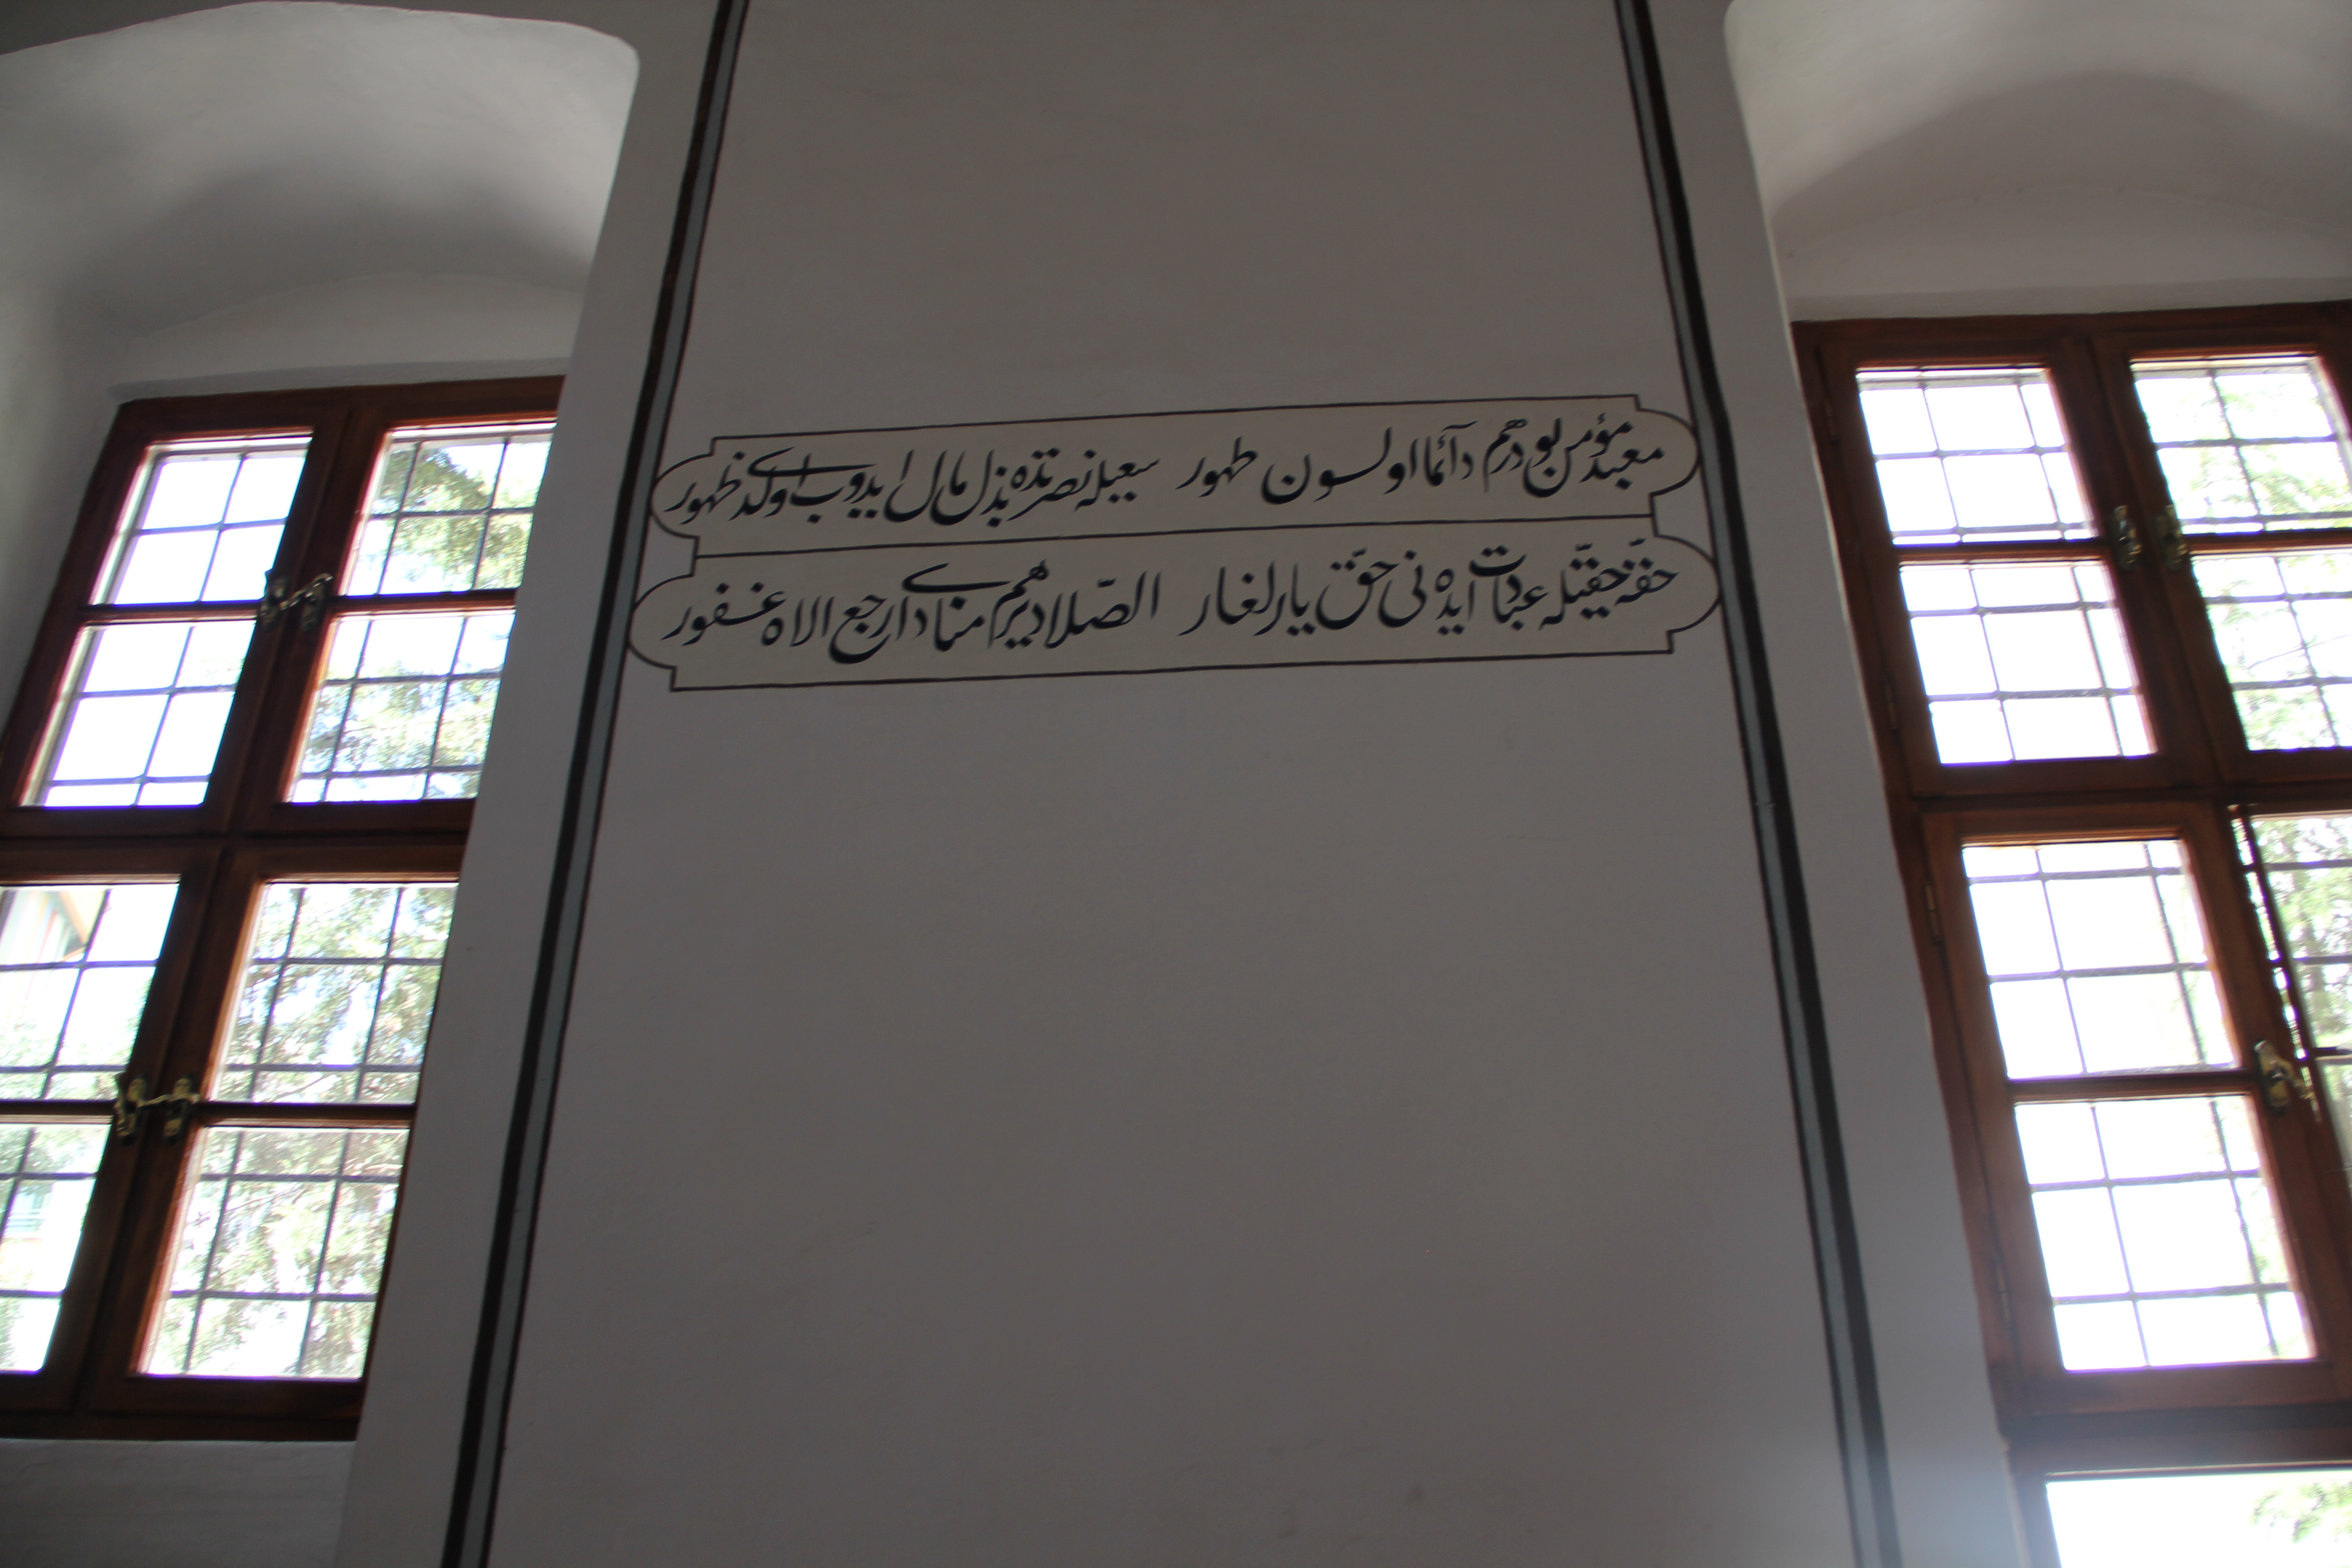 معبد مؤمن بودر هم دآئما اولسون طهور سعیله نصرتده بذل مال ایدوب اولدی ظهور
حقه حقیله عبادت ایده نی حق یارلغار الصّلا دیر هم منادی ارجع الاه غفور